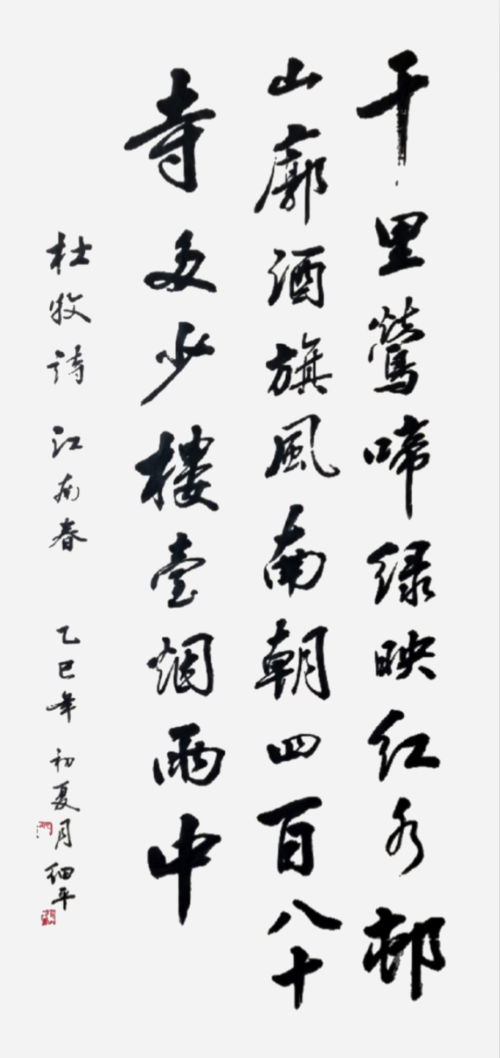 千里莺啼绿映红水邨
山廓酒旗風南朝四百八十
寺多少樓臺烟雨中
杜牧诗 江南春 乙巳年 初夏月 细平